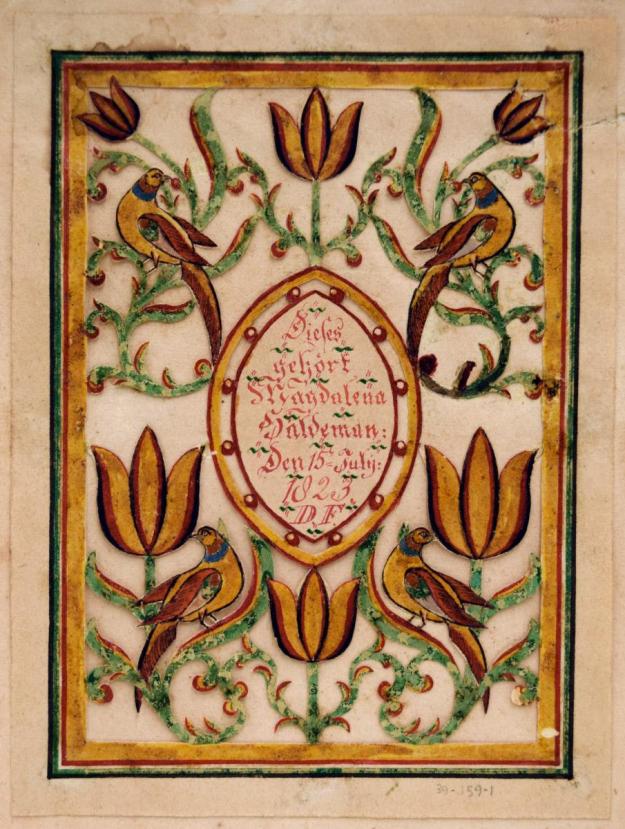 Dieses
gehört
Magdalena
Haldeman:
Den 15= July:
1823
D. F.
39-159-1